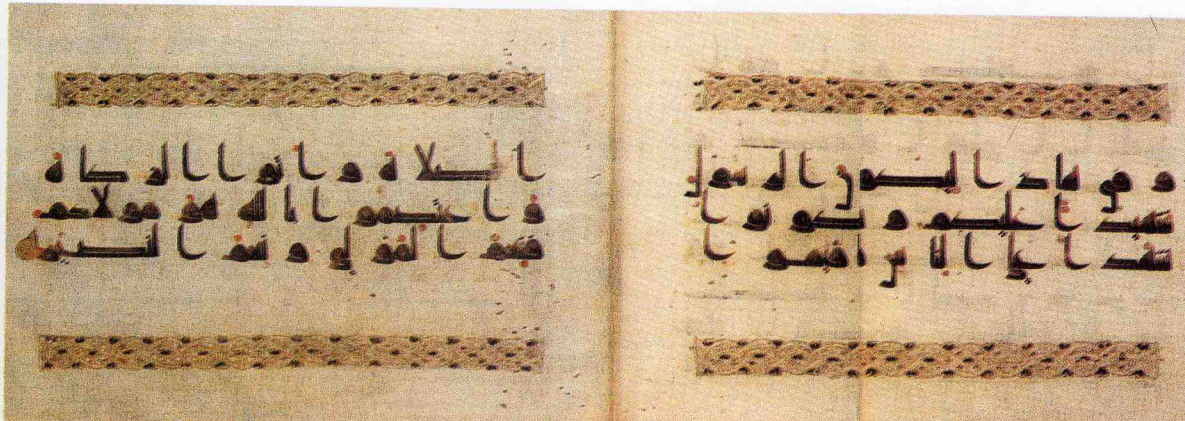 و في هاذا ليكون الرسول
شهيدا عليكم و تكونوا
شهدا على الناس فاقيموا
الصلاة و اتوا الزكاة
و اعتصموا بالله هو مولاكم
فنعم المولى و نعم النصير